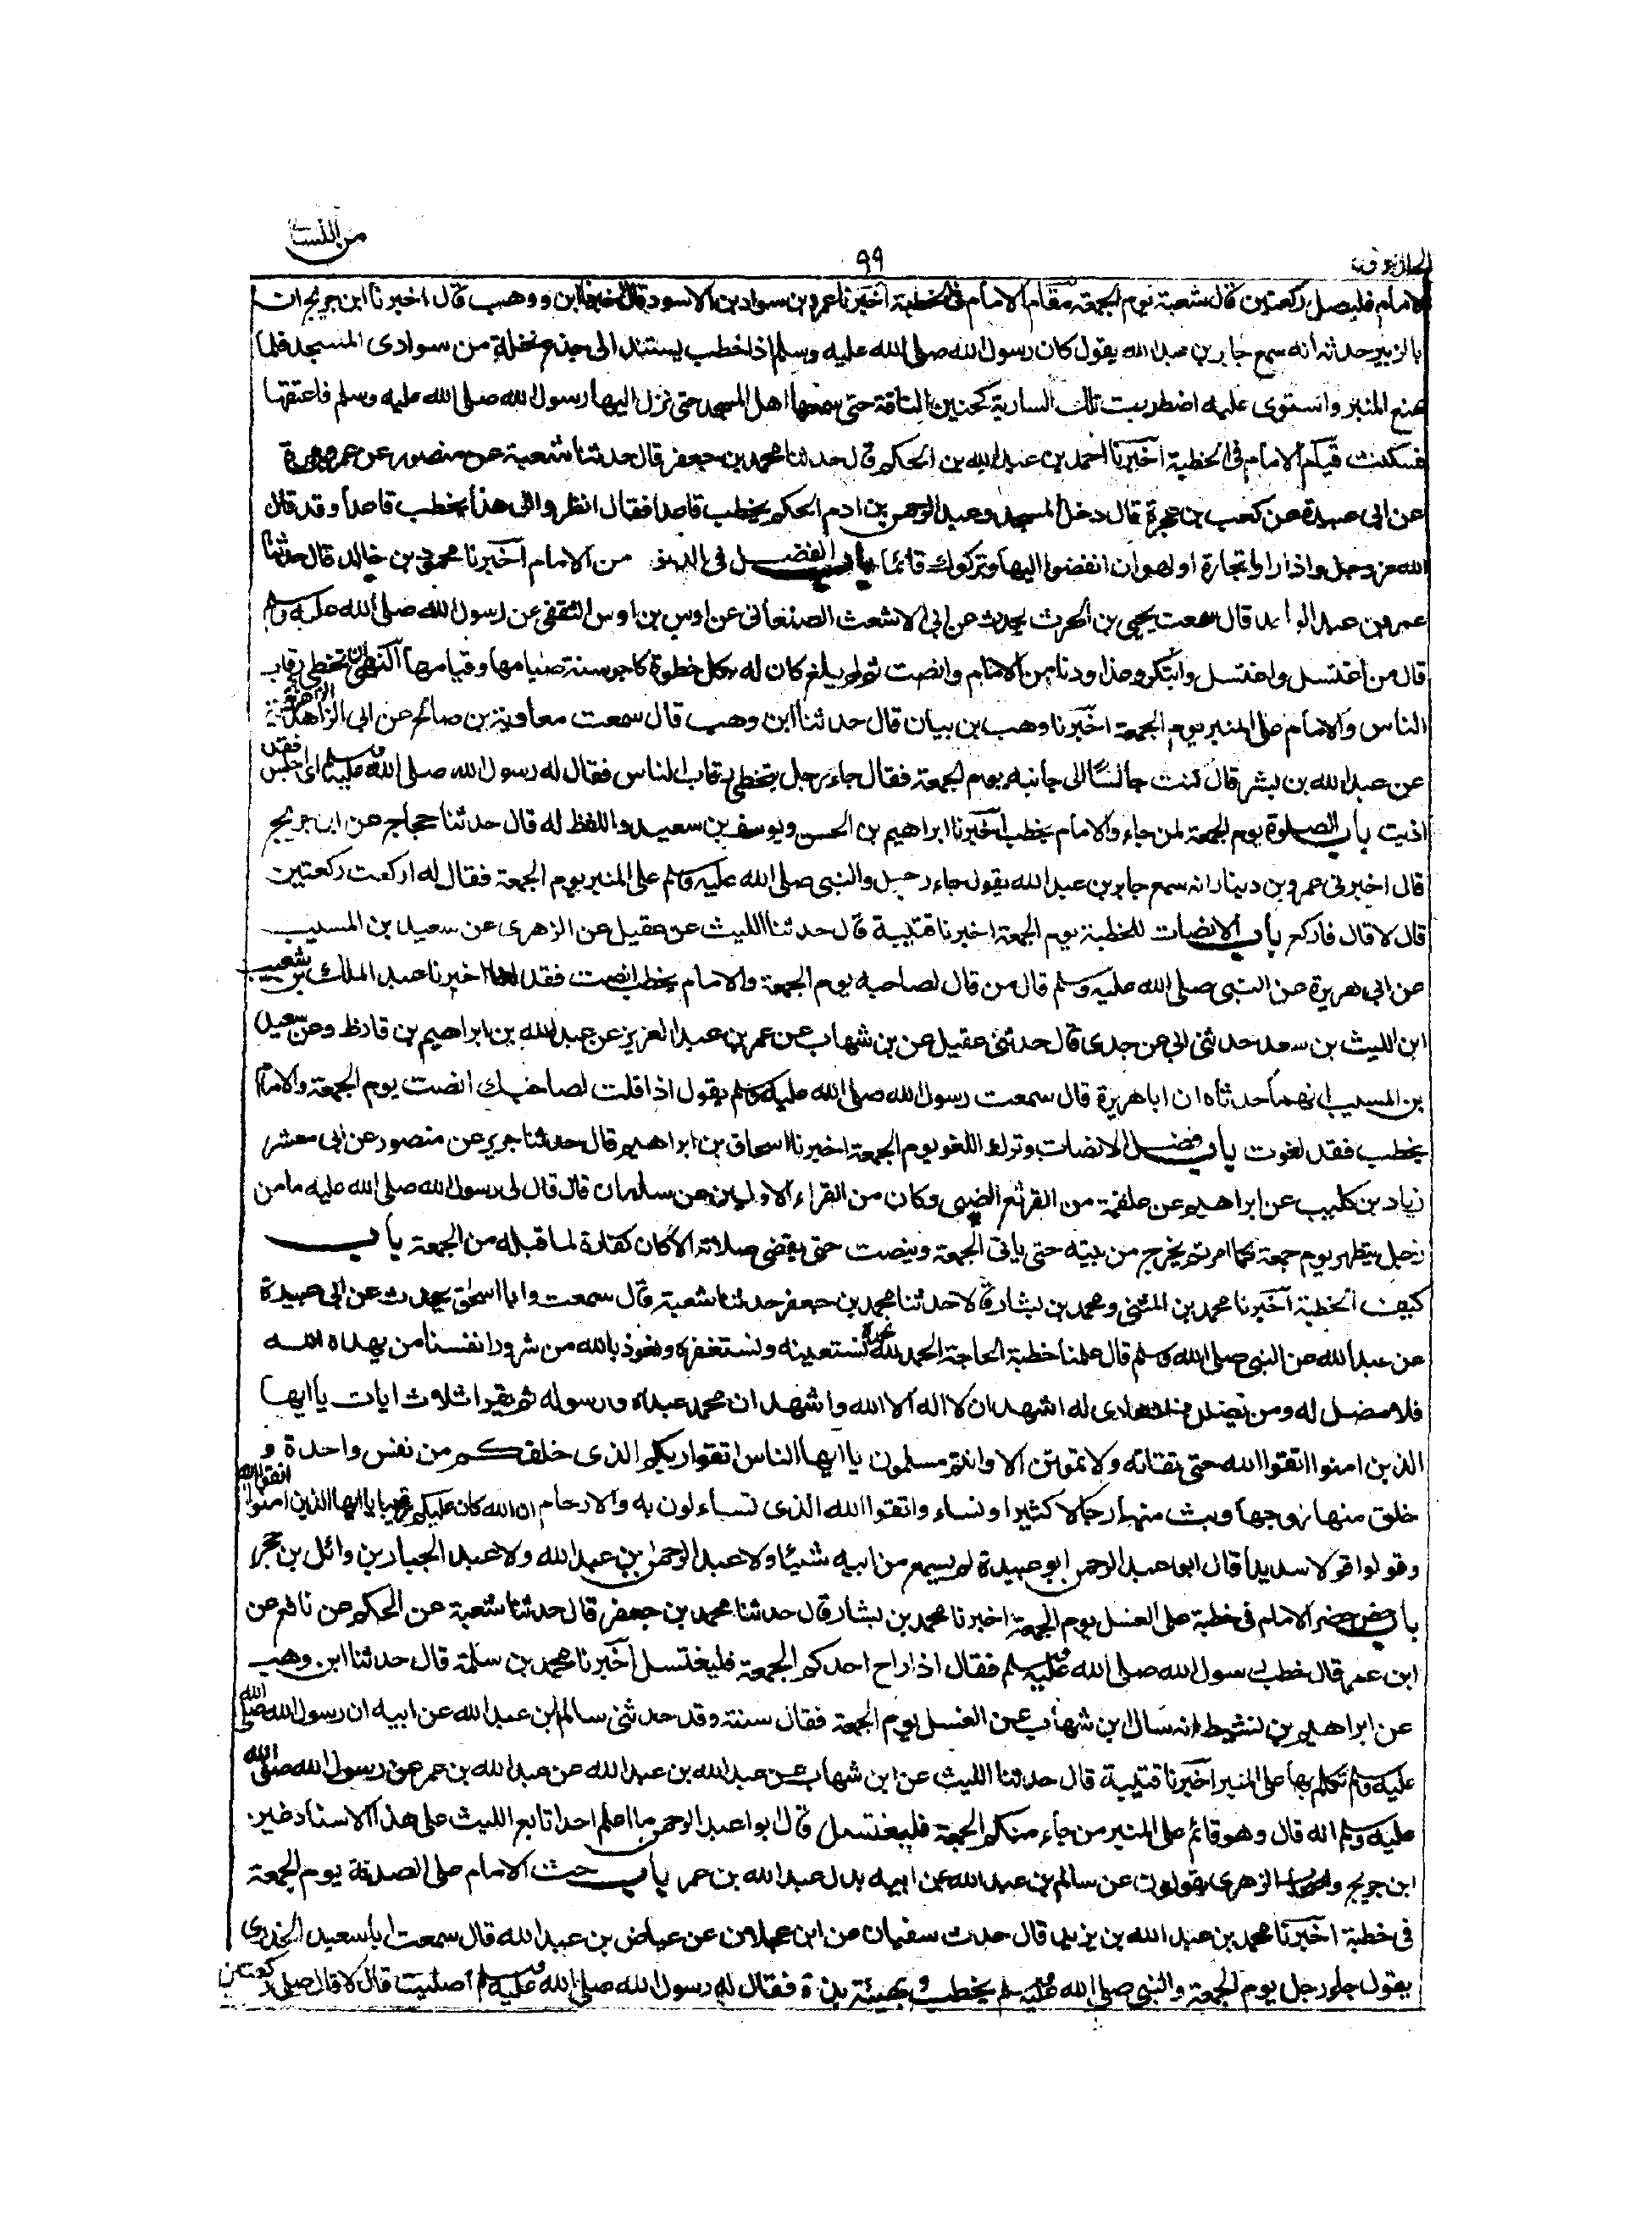 من النسائي
99
الامام فليصل ركعتين قال شعبة يوم الجمعة مقام الامام فى الخطبة اخبرنا عمرو بن سواد بن الاسود قال اخبرنا ابن وهب قال اخبرنا ابن جريج ان
بالزبير حدثه انه سمع جابر بن عبد الله يقول كان رسول الله صلى الله عليه وسلم اذا خطب يستند الى جذع نخلة من سوارى المسجد فلما
صنع المنبر واستوى عليه اضطربت تلك السارية كحنين الناقة حتى سمعها اهل المسجد حتى نزل اليها رسول الله صلى الله عليه وسلم فاعتقها
فسكنت قيام الامام فى الخطبة اخبرنا احمد بن عبد الله بن الحكم قال حدثنا محمد بن جعفر قال حدثنا شعبة عن منصور عن عمرو بن مرة
عن ابى عبيدة عن كعب بن عجرة قال دخل المسجد وعبد الرحمن بن ام الحكم يخطب قاعدا فقال انظروا الى هذا يخطب قاعدا وقد قال
الله عز وجل واذا راوا تجارة او لهوا ن انفضوا اليها وتركوك قائما باب الفضل فى الدنو من الامام اخبرنا محمود بن خالد قال حدثنا
عمر بن عبد الواحد قال سمعت يحيى بن الحرث يحدث عن ابى الاشعث الصنعانى عن اوس بن اوس الثقفى عن رسول الله صلى الله عليه وسلم
قال من اغتسل واغتسل وابتكر وغدا ودنا من الامام وانصت ثم لم يلغ كان له بكل خطوة كاجر سنة صيامها وقيامها النهى عن تخطى رقاب
الناس والامام على المنبر يوم الجمعة اخبرنا وهب بن بيان قال حدثنا ابن وهب قال سمعت معاوية بن صالح عن ابى الزاهرية
عن عبد الله بن بشر قال كنت جالسا الى جانبه يوم الجمعة فقال جاء رجل يتخطى رقاب الناس فقال له رسول الله صلى الله عليه وسلم اى اجلس فقد
اذيت باب الصلوة يوم الجمعة لمن جاء والامام يخطب اخبرنا ابراهيم بن الحسن ويوسف بن سعيد واللفظ له قال حدثنا حجاج عن ابن جريج
قال اخبرنى عمرو بن دينار انه سمع جابر بن عبد الله يقول جاء رجل والنبى صلى الله عليه وسلم على المنبر يوم الجمعة فقال له اركعت ركعتين
قال لا قال فاركع باب الانصات للخطبة يوم الجمعة اخبرنا قتيبة قال حدثنا الليث عن عقيل عن الزهرى عن سعيد بن المسيب
عن ابى هريرة عن النبى صلى الله عليه وسلم قال من قال لصاحبه يوم الجمعة والامام يخطب انصت فقد لغا اخبرنا عبد الملك بن شعيب
ابن الليث بن سعد حدثنى ابى عن جدى قال حدثنى عقيل عن بن شهاب عن عمر بن عبد العزيز عن عبد الله بن ابراهيم بن قارظ وعن سعيد
بن المسيب انهما حدثاه ان ابا هريرة قال سمعت رسول الله صلى الله عليه وسلم يقول اذا قلت لصاحبك انصت يوم الجمعة والامام
يخطب فقد لغوت باب فضل الانصات وترك اللغو يوم الجمعة اخبرنا اسحاق بن ابراهيم قال حدثنا جرير عن منصور عن ابى معشر
زياد بن كليب عن ابراهيم عن علقمة من القرثع الضبى وكان من القراء الاولين عن سلمان قال قال لى رسول الله صلى الله عليه ما من
رجل يتطهر يوم جمعة كما امر ثم يخرج من بيته حتى ياتى الجمعة وينصت حتى يقضى صلاته الا كان كفارة لما قبله من الجمعة باب
كيف الخطبة اخبرنا محمد بن المثنى ومحمد بن بشار قالا حدثنا محمد بن جعفر حدثنا شعبة قال سمعت ابا اسحق يحدث عن ابى عبيدة
عن عبد الله عن النبى صلى الله وسلم قال علمنا خطبة الحاجة الحمد لله نحمده نستعينه ونستغفره ونعوذ بالله من شرور انفسنا من يهده الله
فلا مضل له ومن يضلل فلا هادى له اشهد ان لا اله الا الله واشهد ان محمد عبده ورسوله ثم يقرا ثلاث ايات يا ايها
الذين امنوا اتقوا الله حق تقاته ولا تموتن الا وانتم مسلمون يا ايها الناس اتقوا ربكم الذى خلقكم من نفس واحدة و
خلق منها زوجها وبث منهما رجالا كثيرا ونساء واتقوا الله الذى تساءلون به والارحام ان الله كان عليكم رقيبا يا ايها الذين امنوا اتقوا الله
وقولوا قولا سديدا قال ابو عبد الرحمن ابو عبيدة لم يسمع من ابيه شيئا ولا عبد الرحمن بن عبد الله ولا عبد الجبار بن وائل بن حجر
باب حض الامام فى خطبة على الغسل يوم الجمعة اخبرنا محمد بن بشار قال حدثنا محمد بن جعفر قال حدثنا شعبة عن الحكم عن نافع عن
ابن عمر قال خطب رسول الله صلى الله عليه وسلم فقال اذا راح احدكم الجمعة فليغتسل اخبرنا محمد بن سلمة قال حدثنا ابن وهب
عن ابراهيم بن نشيط انه سال ابن شهاب عن الغسل يوم الجمعة فقال سنة وقد حدثنى سالم بن عبد الله عن ابيه ان رسول الله صلى الله
عليه وسلم تكلم بها على المنبر اخبرنا قتيبة قال حدثنا الليث عن ابن شهاب عن عبد الله بن عبد الله عن عبد الله بن عمر عن رسول الله صلى الله
عليه وسلم انه قال وهو قائم على المنبر من جاء منكم الجمعة فليغتسل قال ابو عبد الرحمن ما اعلم احدا تابع الليث على هذا الاسناد غير
ابن جريج واصحاب الزهرى يقولون عن سالم بن عبد الله عن ابيه بدل عبد الله بن عمر باب حث الامام على الصدقة يوم الجمعة
فى خطبة اخبرنا محمد بن عبد الله بن يزيد قال حدث سفيان عن ابن عجلان عن عياض بن عبد الله قال سمعت ابا سعيد الخدرى
يقول جاء رجل يوم الجمعة والنبى صلى الله عليه وسلم يخطب وبهيئة بذة فقال له رسول الله صلى الله عليه وسلم اصليت قال لا قال صل ركعتين